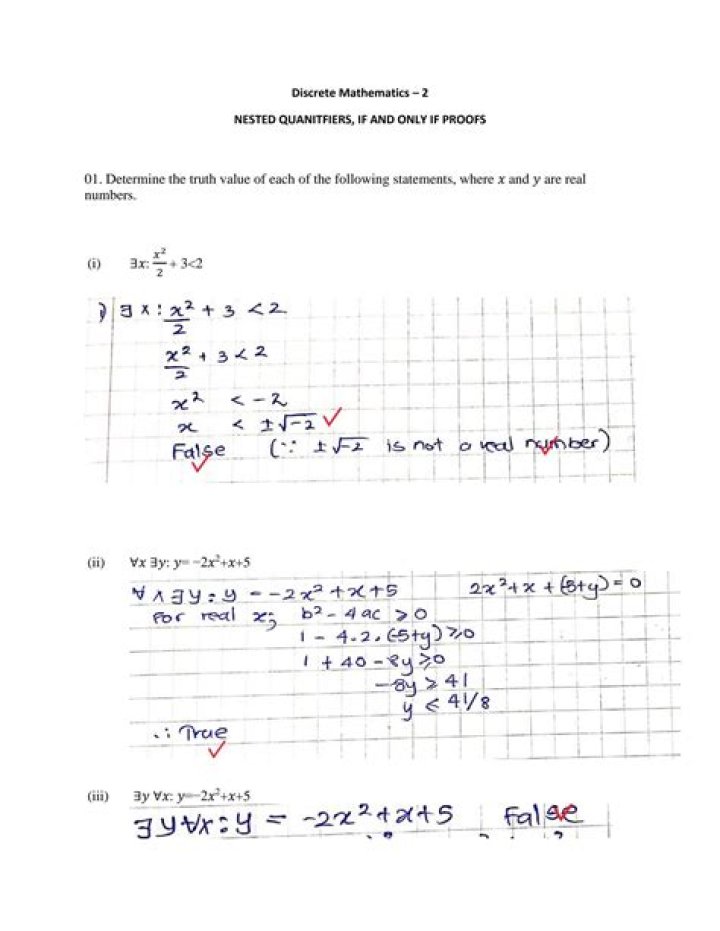 Discrete Mathematics – 2
NESTED QUANITFIERS, IF AND ONLY IF PROOFS
01. Determine the truth value of each of the following statements, where x and y are real
numbers.
(i) ∃x: x²/2 + 3<2
i) ∃ x : x²/2 + 3 < 2
x²/2 + 3 < 2
x² < -2
x < ±√-2
False (∵ ±√-2 is not a real number)
(ii) ∀x ∃y: y= −2x²+x+5
∀ x ∃ y : y = -2x² + x + 5 2x² + x + (-5+y) = 0
For real x; b² - 4ac ≥ 0
1 - 4.2.(-5+y) ≥ 0
1 + 40 - 8y ≥ 0
-8y ≥ 41
y < 41/8
∴ True
(iii) ∃y ∀x: y=−2x²+x+5
∃ y ∀x : y = -2x² + x + 5 False